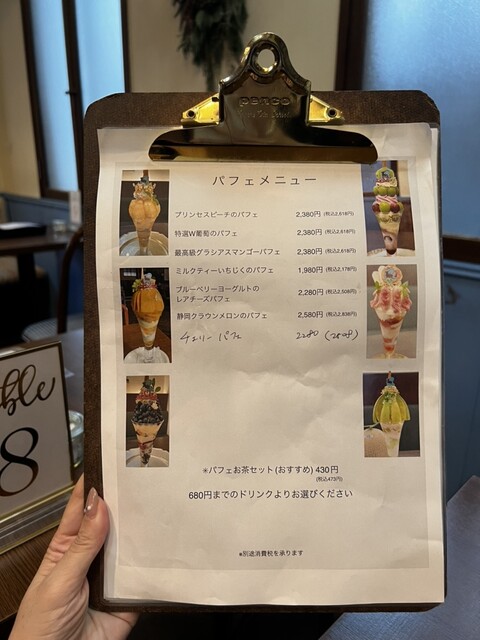 penco
パフェメニュー
プリンセスピーチのパフェ 2,380円 (税込2,618円)
特選W葡萄のパフェ 2,380円 (税込2,618円)
最高級グラシアスマンゴーパフェ 2,380円 (税込2,618円)
ミルクティーいちじくのパフェ 1,980円 (税込2,178円)
ブルーベリーヨーグルトの
レアチーズパフェ 2,280円 (税込2,508円)
静岡クラウンメロンのパフェ 2,580円 (税込2,838円)
チェリーパフェ 2280 (2508)
※パフェお茶セット(おすすめ) 430円
(税込473円)
680円までのドリンクよりお選びください
※別途消費税を承ります
ble
8